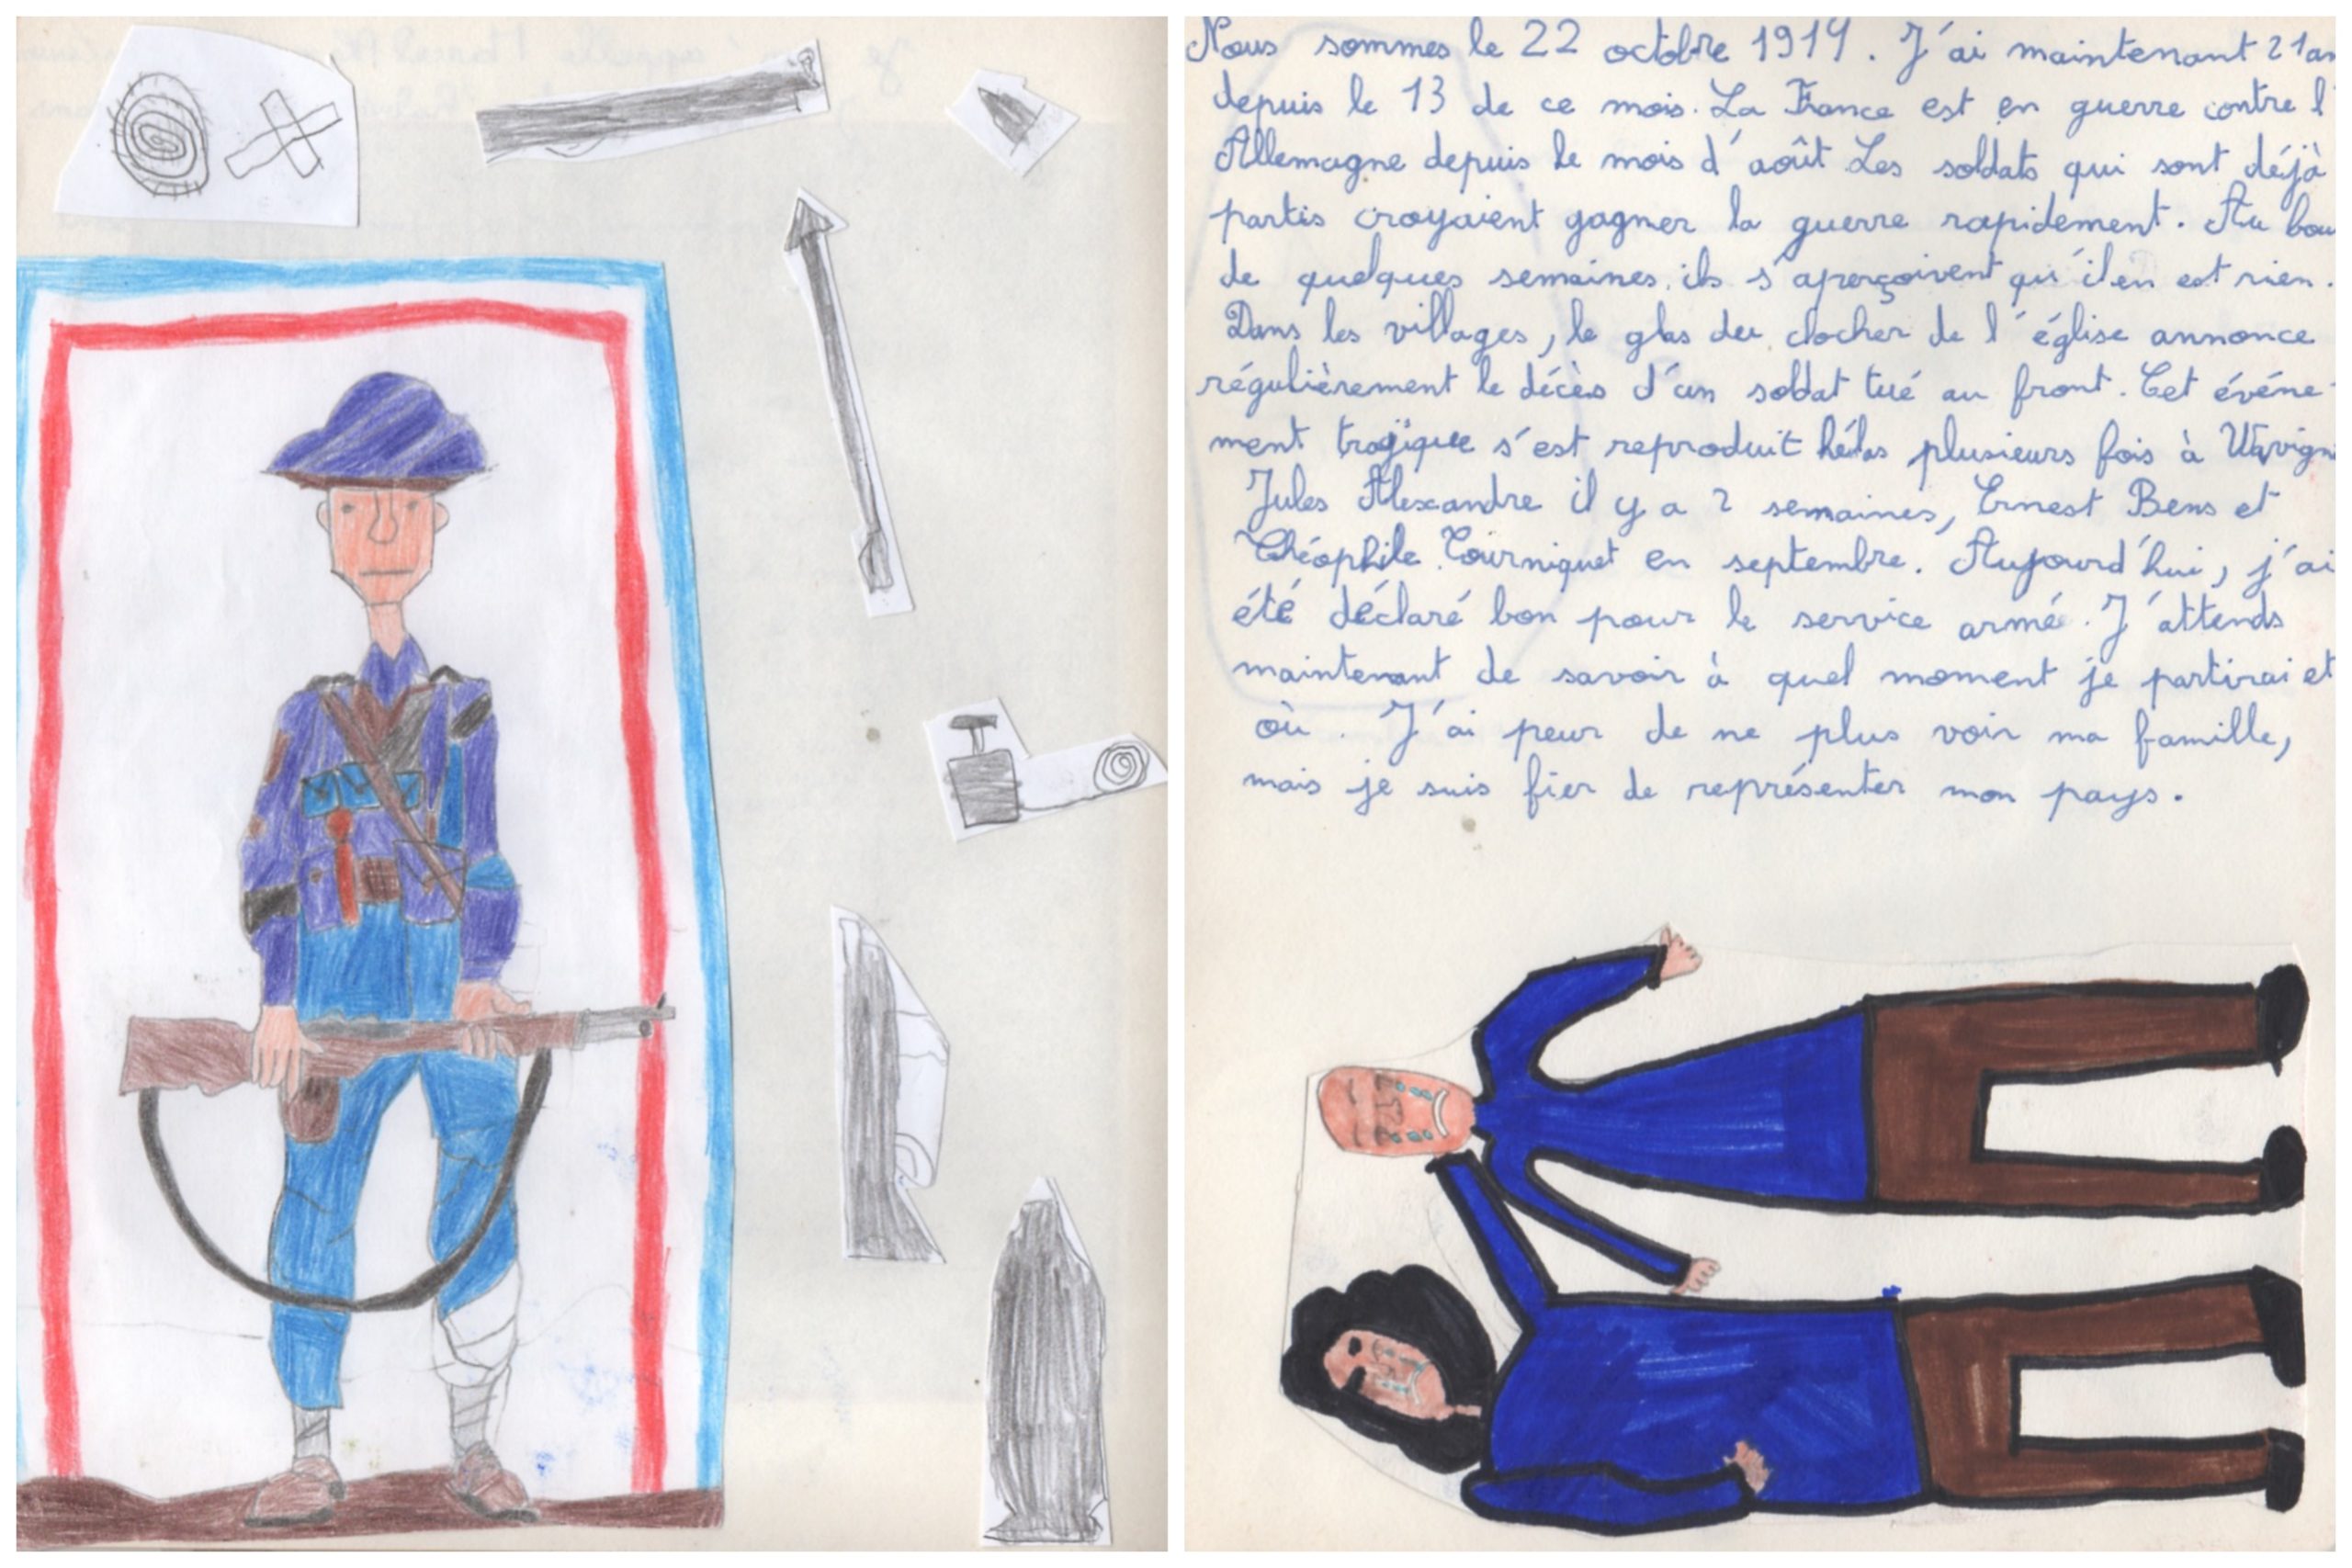 Nous sommes le 22 octobre 1914. J'ai maintenant 21 an
depuis le 13 de ce mois. La France est en guerre contre l'
Allemagne depuis le mois d'août Les soldats qui sont déjà
partis croyaient gagner la guerre rapidement. Au bou
de quelques semaines, ils s'aperçoivent qu'il en est rien.
Dans les villages, le glas du clocher de l'église annonce
régulièrement le décès d'un soldat tué au front. Cet événe-
ment tragique s'est reproduit hélas plusieurs fois à Wavign
Jules Alexandre il y a 2 semaines, Ernest Bens et
Théophile Tourniquet en septembre. Aujourd'hui, j'ai
été déclaré bon pour le service armé. J'attends
maintenant de savoir à quel moment je partirai et
où. J'ai peur de ne plus voir ma famille,
mais je suis fier de représenter mon pays.